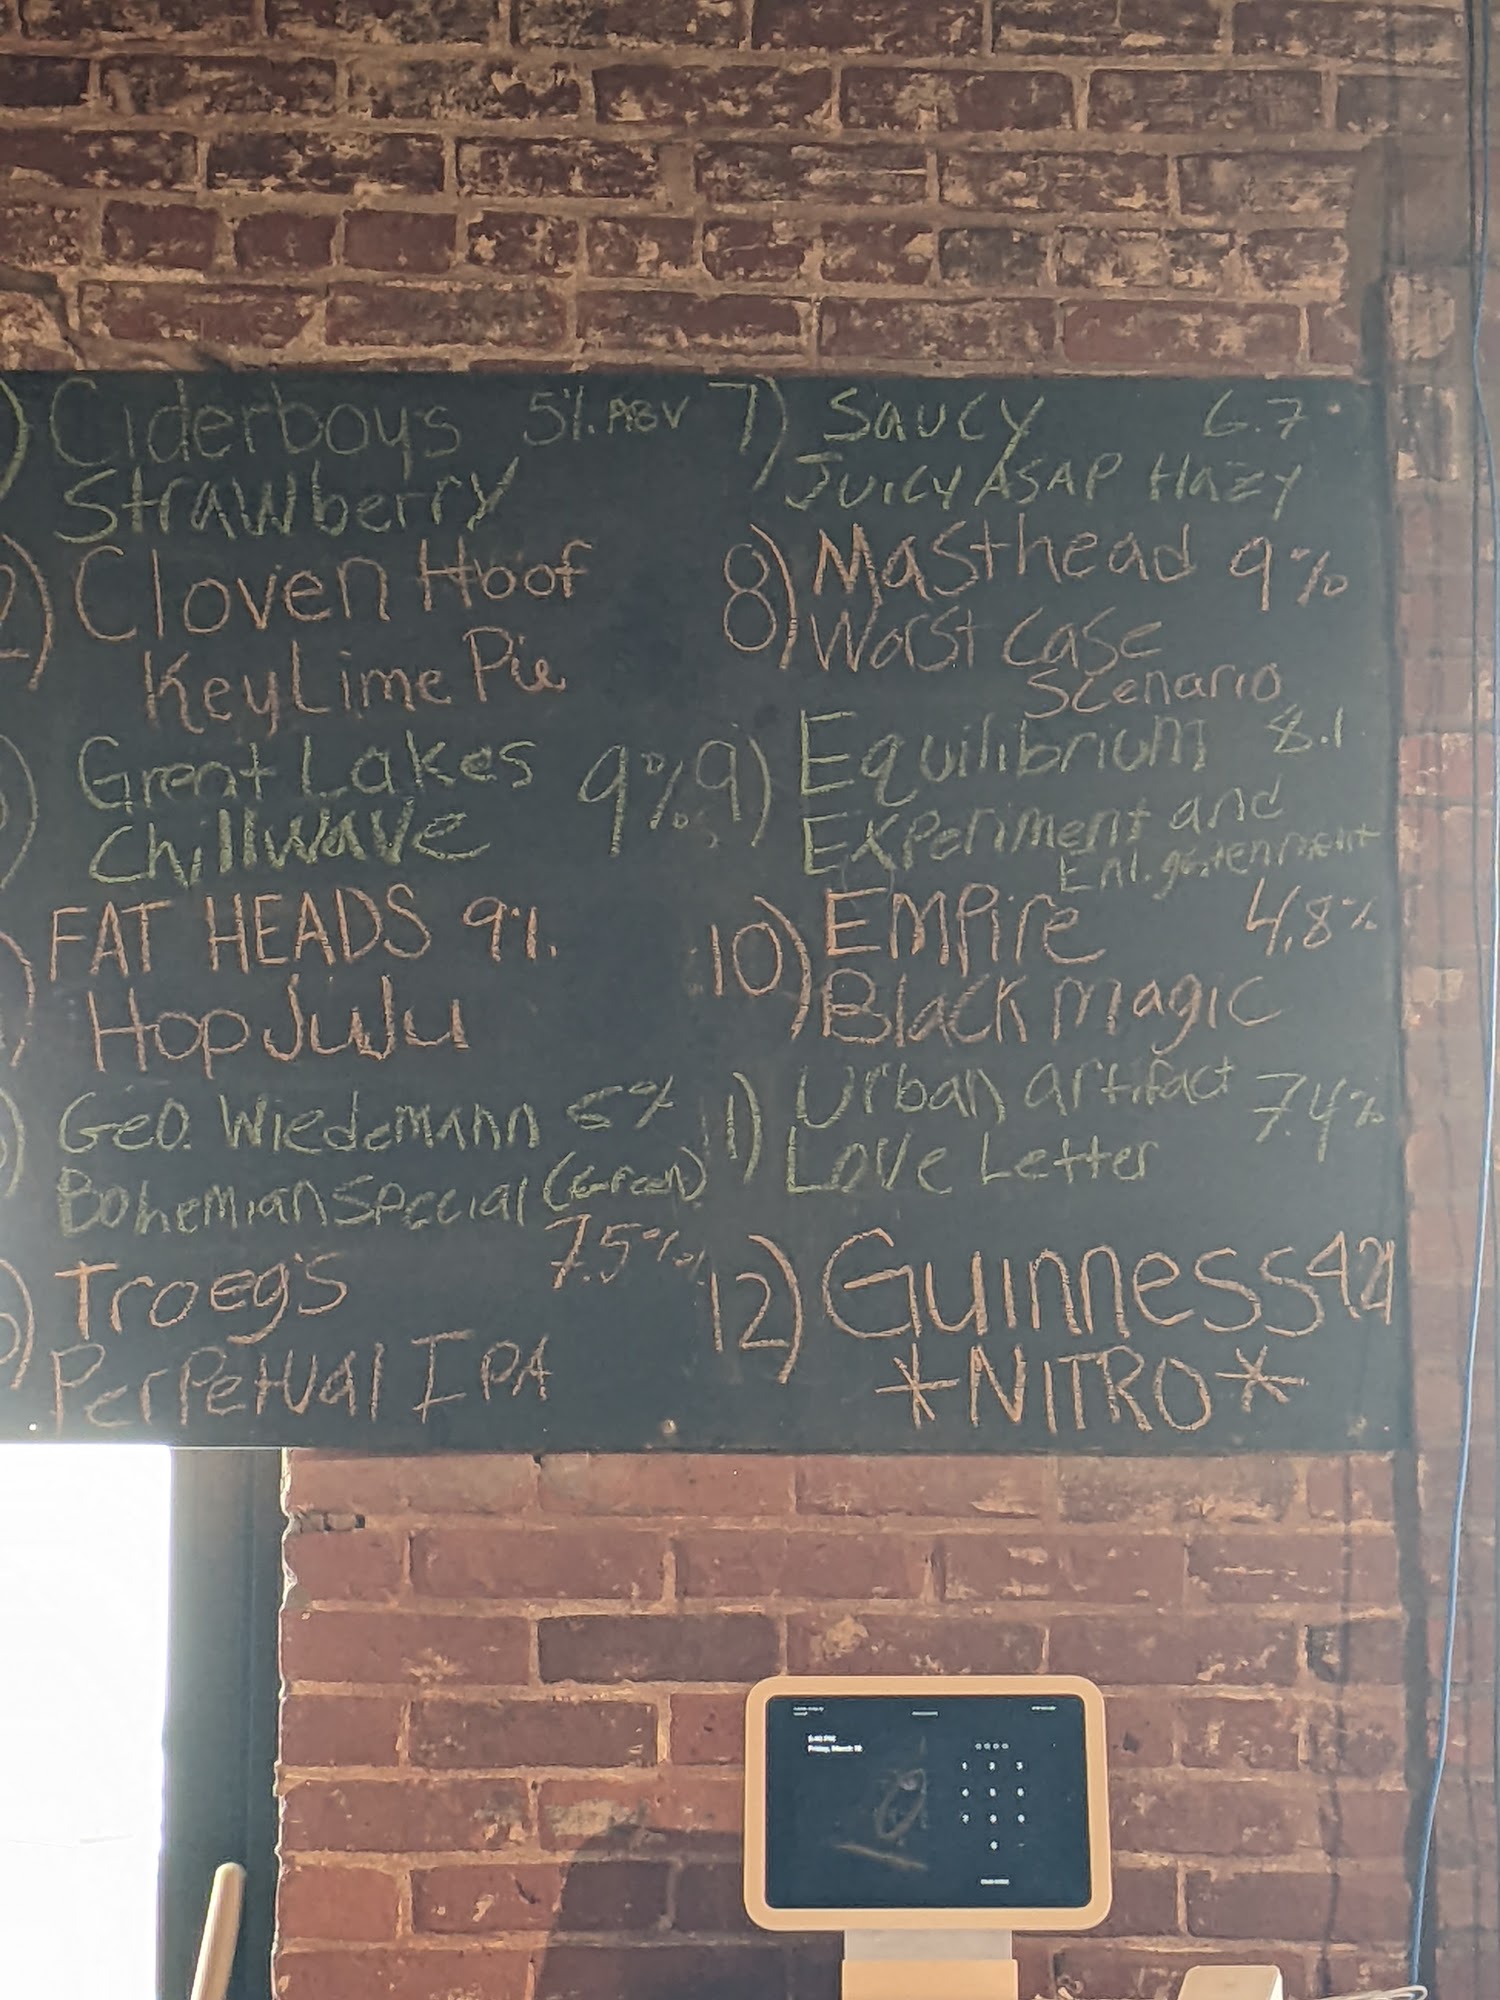 ) Ciderboys 5% ABV
Strawberry
2) Cloven Hoof
Key Lime Pie
) Great Lakes 9%
Chillwave
) FAT HEADS 9%
Hop JuJu
) Geo. Wiedemann 5%
Bohemian Special (Green)
) Troegs 7.5%
Perpetual IPA
7) Saucy 6.7
Juicy ASAP Hazy
8) Masthead 9%
Worst Case
Scenario
9) Equilibrium 8.1
Experiment and
10) Empire 4.8%
Black magic
11) Urban artifact 7.4%
Love Letter
12) Guinness
*NITRO*
Friday, March
1 2 3